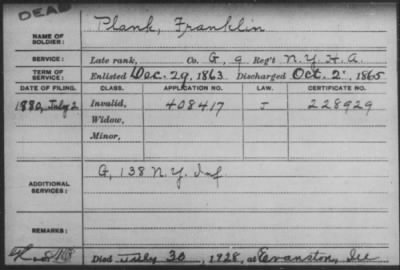 DEAD
NAME OF SOLDIER: Plank, Franklin
SERVICE: Late rank, Co. G, 9 Reg't N.Y.H.A.
TERM OF SERVICE: Enlisted Dec. 29, 1863 Discharged Oct. 2, 1865
DATE OF FILING. CLASS. APPLICATION NO. LAW. CERTIFICATE NO.
1880, July 2 Invalid, 408417 J 228929
Widow,
Minor,
ADDITIONAL SERVICES: G, 138 N.Y. Inf
REMARKS:
Died July 30, 1928, at Evanston, Ill